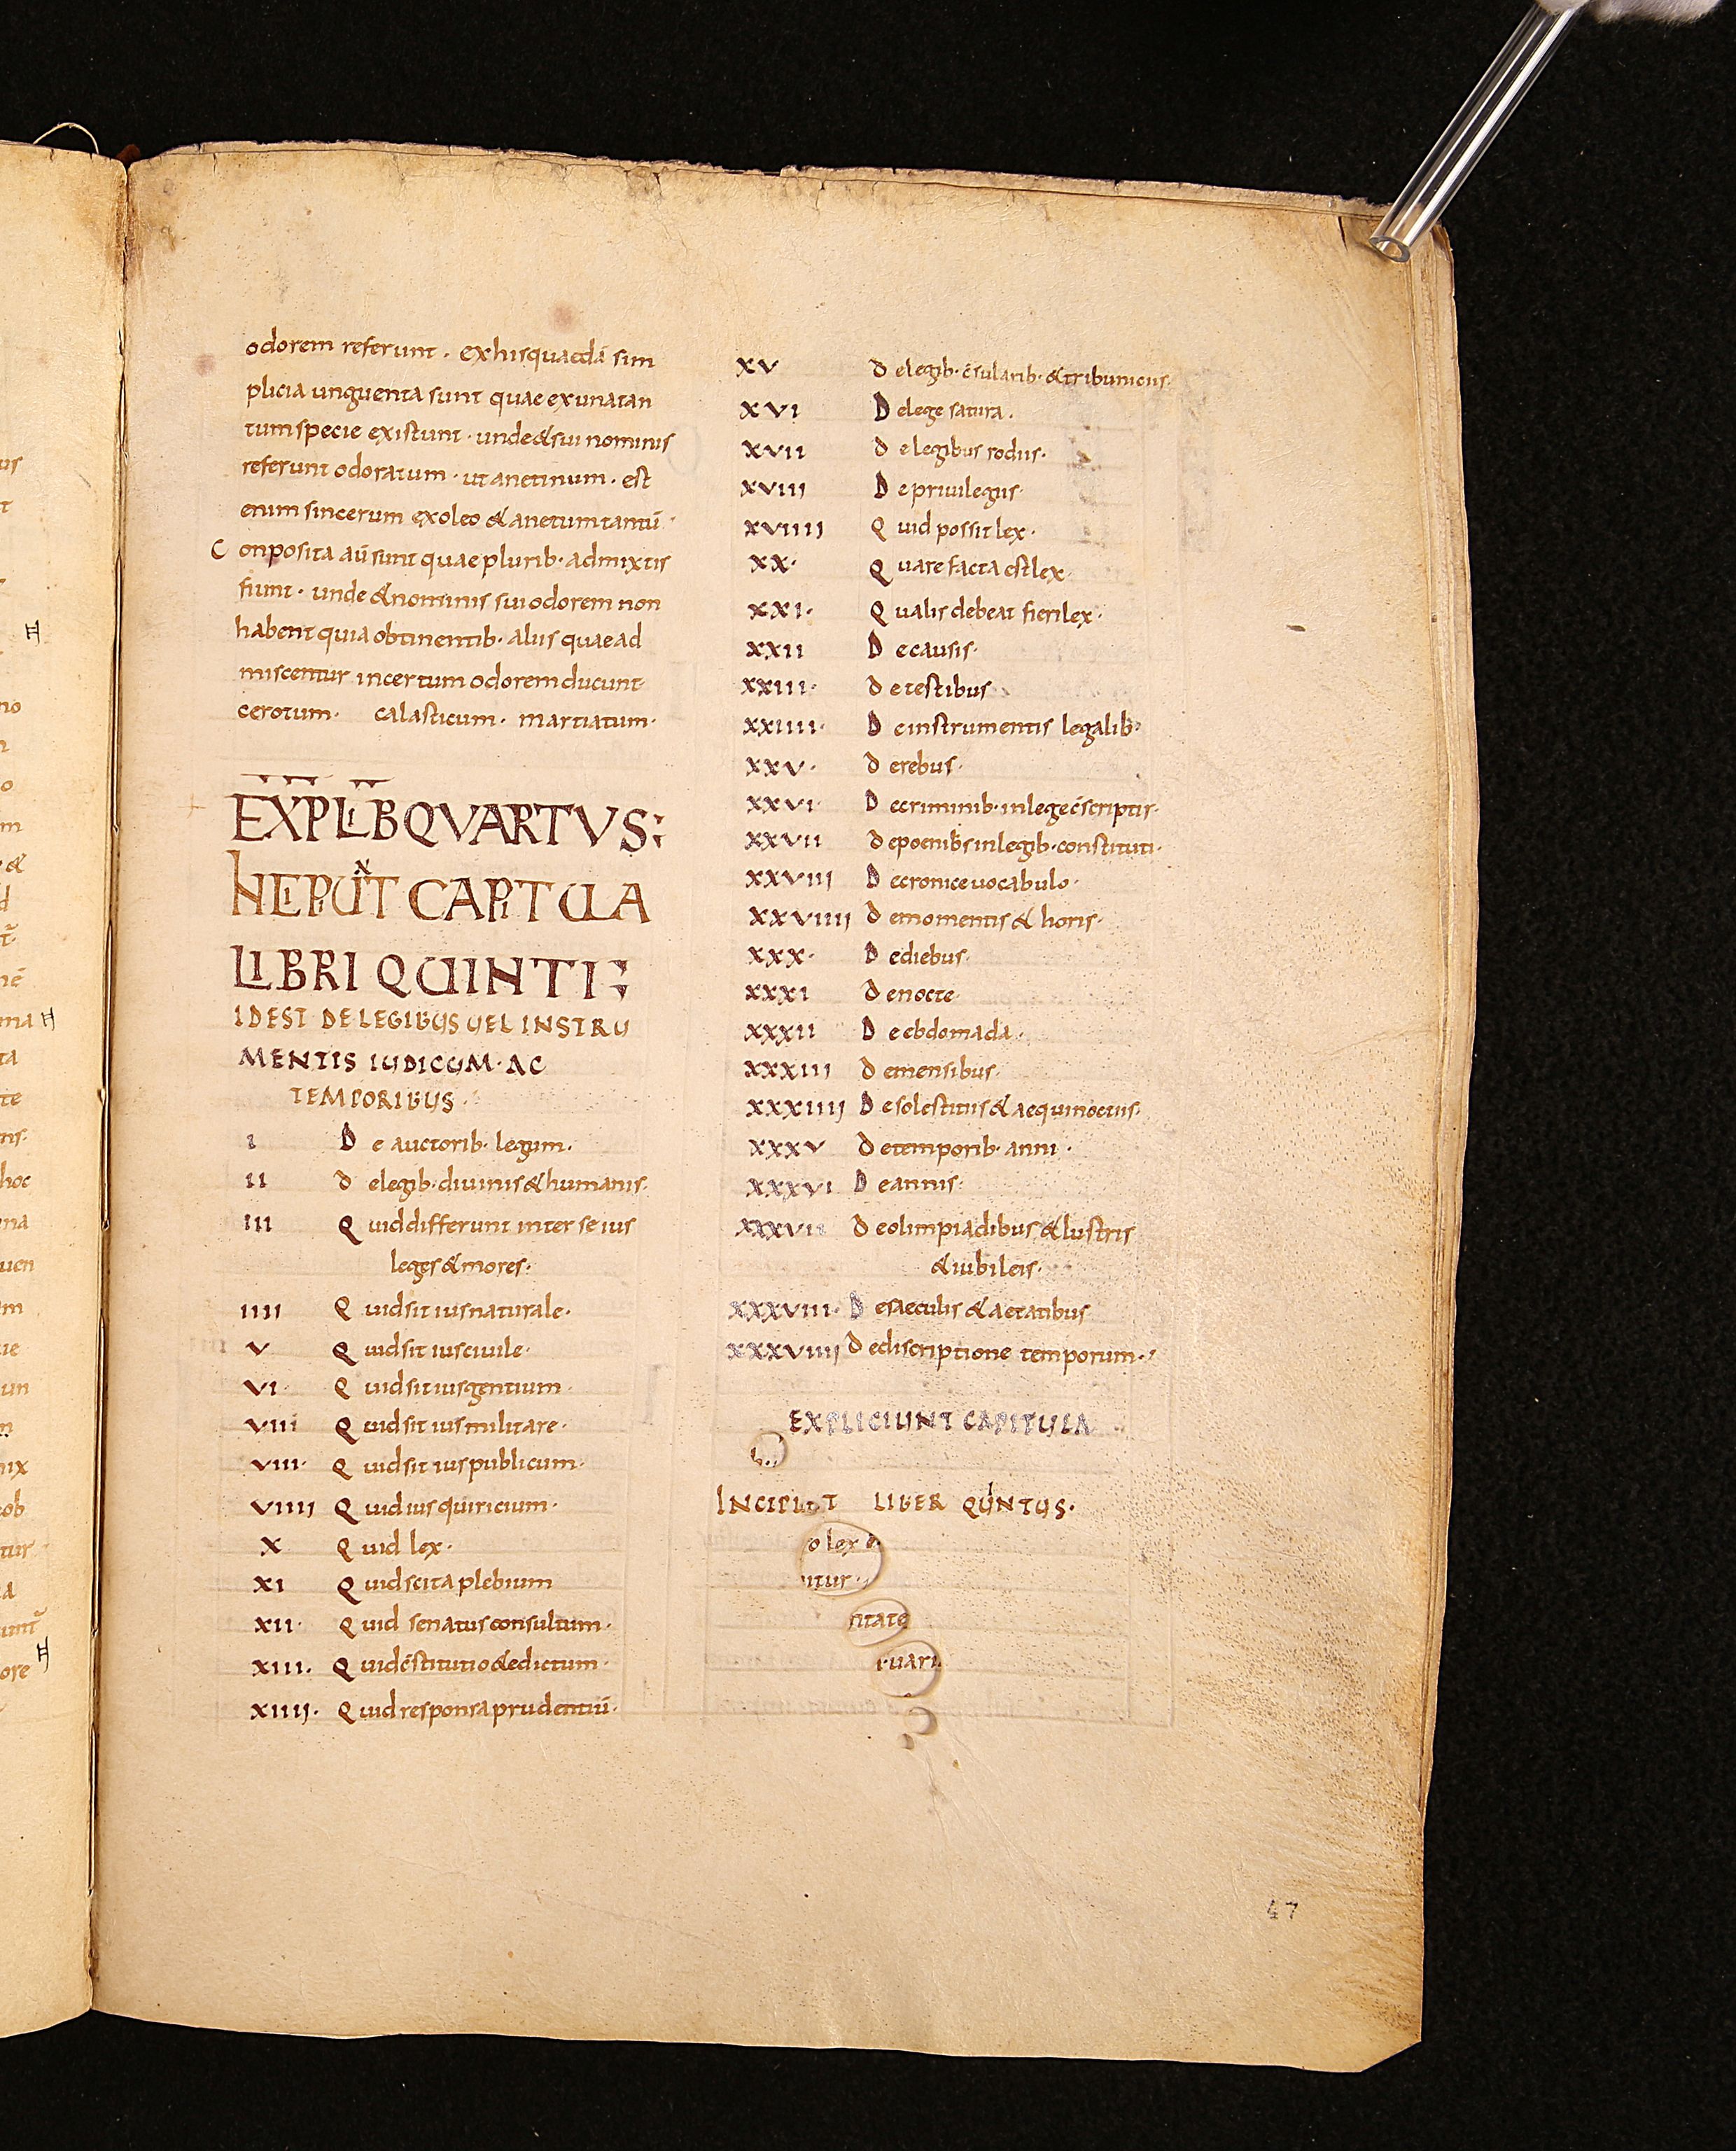 odorem referunt. exhisquaedā sim
plicia unguenta sunt quae exunatan
tumspecie existunt. unde&sui nominis
referunt odoratum. ut anetinum. est
enim sincerum exoleo &anetumtantū.
C onposita aū sunt quae plurib. admixtis
fiunt. unde &nominis sui odorem non
habent quia obtinentib. aliis quae ad
miscentur incertum odorem ducunt
cerotum. calasticum. martiatum.
EXPLIB QVARTVS:
HEIPUNT CAPITULA
LIBRI QUINTI:
IDEST DE LEGIBUS UEL INSTRU
MENTIS IUDICUM. AC
TEMPORIBUS.
I De auctorib. legum.
II de legib. diuinis &humanis.
III Quid differunt inter se ius
leges &mores.
IIII Quid sit ius naturale.
V Quid sit ius ciuile.
VI Quid sit ius gentium.
VIII Quid sit ius militare.
VIII. Quid sit ius publicum.
VIIII Quid ius quiricium.
X Quid lex.
XI Quid scita plebium
XII. Quid senatus consultum.
XIII. Quid cōstitutio &edictum.
XIIII. Quid responsa prudentiū.
XV de legib. cōsularib. &tribuniciis.
XVI De lege satura.
XVII de legibus rodiis.
XVIII De priuilegiis.
XVIIII Quid possit lex.
XX. Quare facta est lex.
XXI. Qualis debeat fieri lex.
XXII De causis.
XXIII. de testibus
XXIIII. De instrumentis legalib.
XXV. de rebus.
XXVI. De criminib. in lege cōscriptis.
XXVII de poenibs in legib. constituti.
XXVIII De cronice uocabulo.
XXVIIII de momentis & horis.
XXX. De diebus.
XXXI de nocte.
XXXII De ebdomada.
XXXIII de mensibus.
XXXIIII De solestitiis &aequinoctiis.
XXXV de temporib. anni.
XXXVI De annis.
XXXVII de olimpiadibus &lustris
&iubileis.
XXXVIII. De saeculis &aetatibus
XXXVIIII de discriptione temporum.
EXPLICIUNT CAPITULA
INCIPI T LIBER QUINTUS.
o lex
itur.
ritate
ruari
47